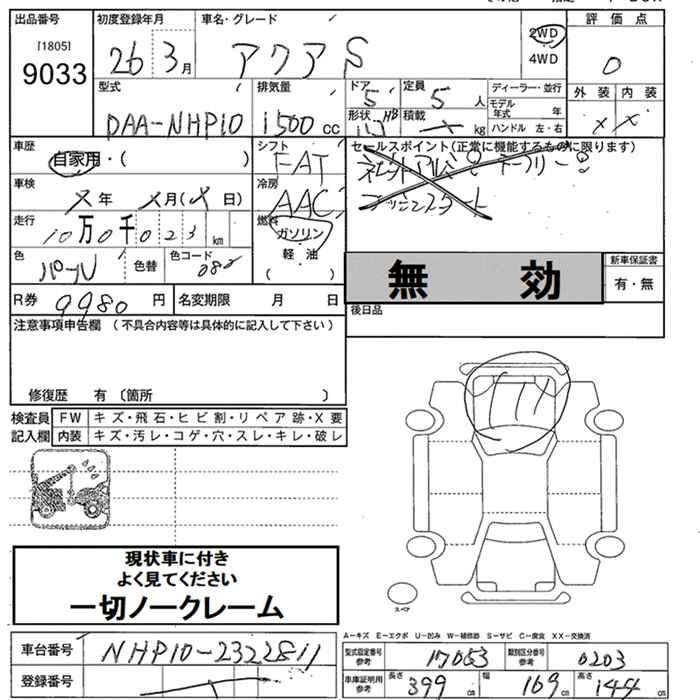 出品番号 初度登録年月 車名・グレード 評価点
[1805]
9033 26 3月 アクア S 2WD 4WD 0
型式 排気量 ドア 定員 ディーラー・並行 外装 内装
DAA-NHP10 1500cc 5 5人 モデル年式 年 × ×
形状 HB 積載 kg ハンドル 左・右
車歴 シフト セールスポイント(正常に機能するものに限ります)
自家用・( ) FAT
車検 年 月( 日) 冷房 AAC
走行 燃料
10万0千023km ガソリン
軽油
( )
色 パール 色替 色コード 無効 新車保証書
有・無
R券 9980円 名変期限 月 日 後日品
注意事項申告欄(不具合内容等は具体的に記入して下さい)
修復歴 有〔箇所 〕
検査員 FW キズ・飛石・ヒビ割・リペア跡・X要
記入欄 内装 キズ・汚レ・コゲ・穴・スレ・キレ・破レ
現状車に付き
よく見てください
一切ノークレーム
スペア
A-キズ E-エクボ U-凹み W-補修跡 S-サビ C-腐食 XX-交換済
車台番号 NHP10-2322811 型式指定番号 参考 17053 類別区分番号 参考 0203
登録番号 車庫証明用 参考 長さ 399cm 幅 169cm 高さ 144cm